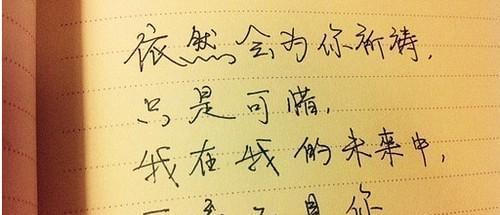 依然会为你祈祷，
只是可惜，
我在我的未来中，
是你